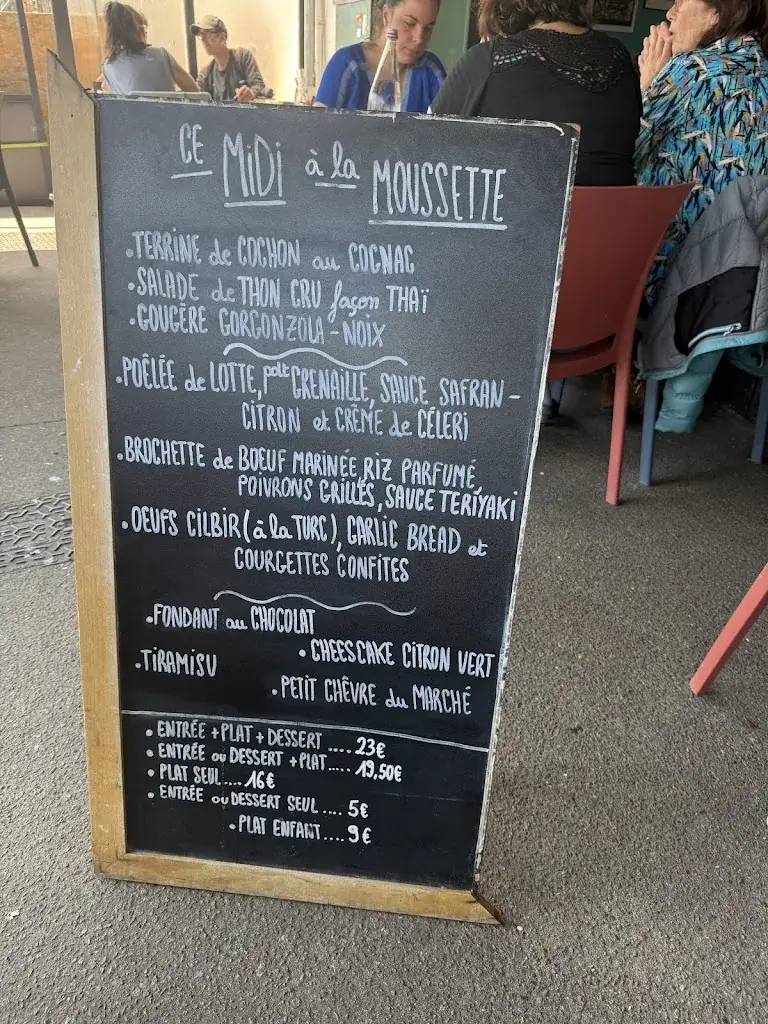 CE MiDi à la MOUSSETTE
• TERRINE de COCHON au COGNAC
• SALADE de THON CRU façon THAÏ
• GOUGÈRE GORGONZOLA - NOIX
• POÊLÉE de LOTTE, pdt GRENAILLE, SAUCE SAFRAN -
CITRON et CRÈME de CÉLERI
• BROCHETTE de BOEUF MARINÉE, RIZ PARFUMÉ,
POIVRONS GRILLÉS, SAUCE TERIYAKI
• OEUFS CILBIR (à la TURC), GARLIC BREAD et
COURGETTES CONFITES
• FONDANT au CHOCOLAT
• CHEESCAKE CITRON VERT
• TIRAMISU
• PETIT CHÊVRE du MARCHÉ
• ENTRÉE + PLAT + DESSERT ..... 23€
• ENTRÉE ou DESSERT + PLAT ..... 19,50€
• PLAT SEUL .... 16€
• ENTRÉE ou DESSERT SEUL .... 5€
• PLAT ENFANT .... 9€